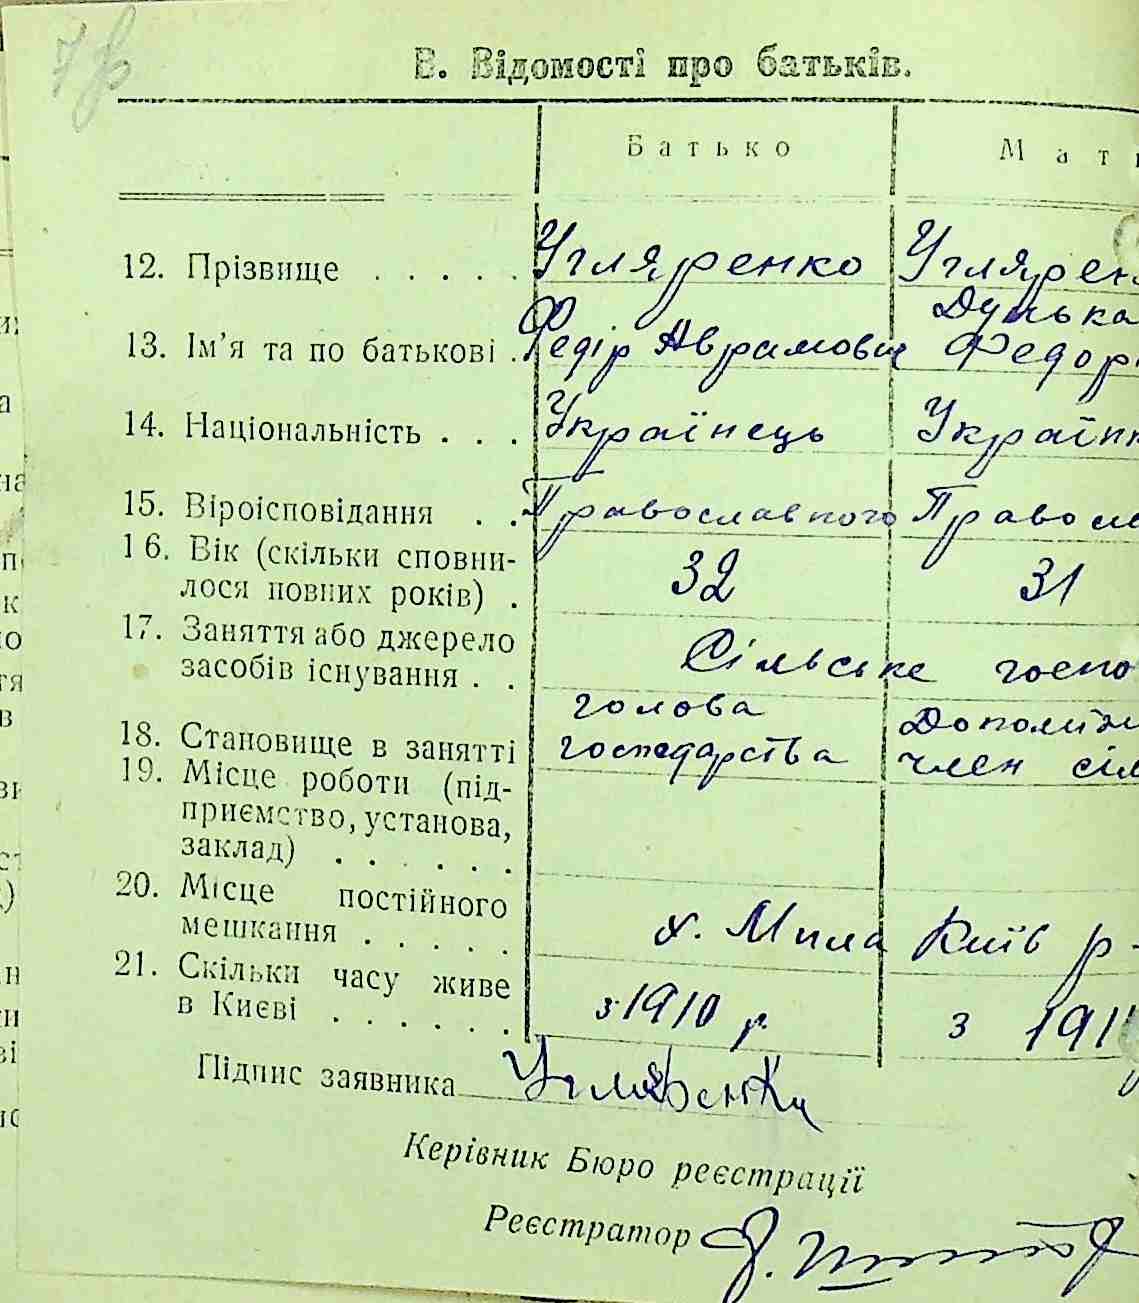 В. Відомості про батьків.
Батько Мат
12. Прізвище . . . . . Угляренко Угляренк
Думька
13. Ім’я та по батькові . Федір Аврамович Федор
14. Національність . . . Українець Українк
15. Віроісповідання . . Православного Правосл
16. Вік (скільки сповни-
лося повних років) . 32 31
17. Заняття або джерело
засобів існування . . Сільське госпо
18. Становище в занятті голова господарства Допоміжн член сіл
19. Місце роботи (під-
приємство, установа,
заклад) . . . . . .
20. Місце постійного
мешкання . . . . . х. Мила Київ р-
21. Скільки часу живе
в Києві . . . . . . з 1910 р. з 191
Підпис заявника Угляренка
Керівник Бюро реєстрації
Реєстратор